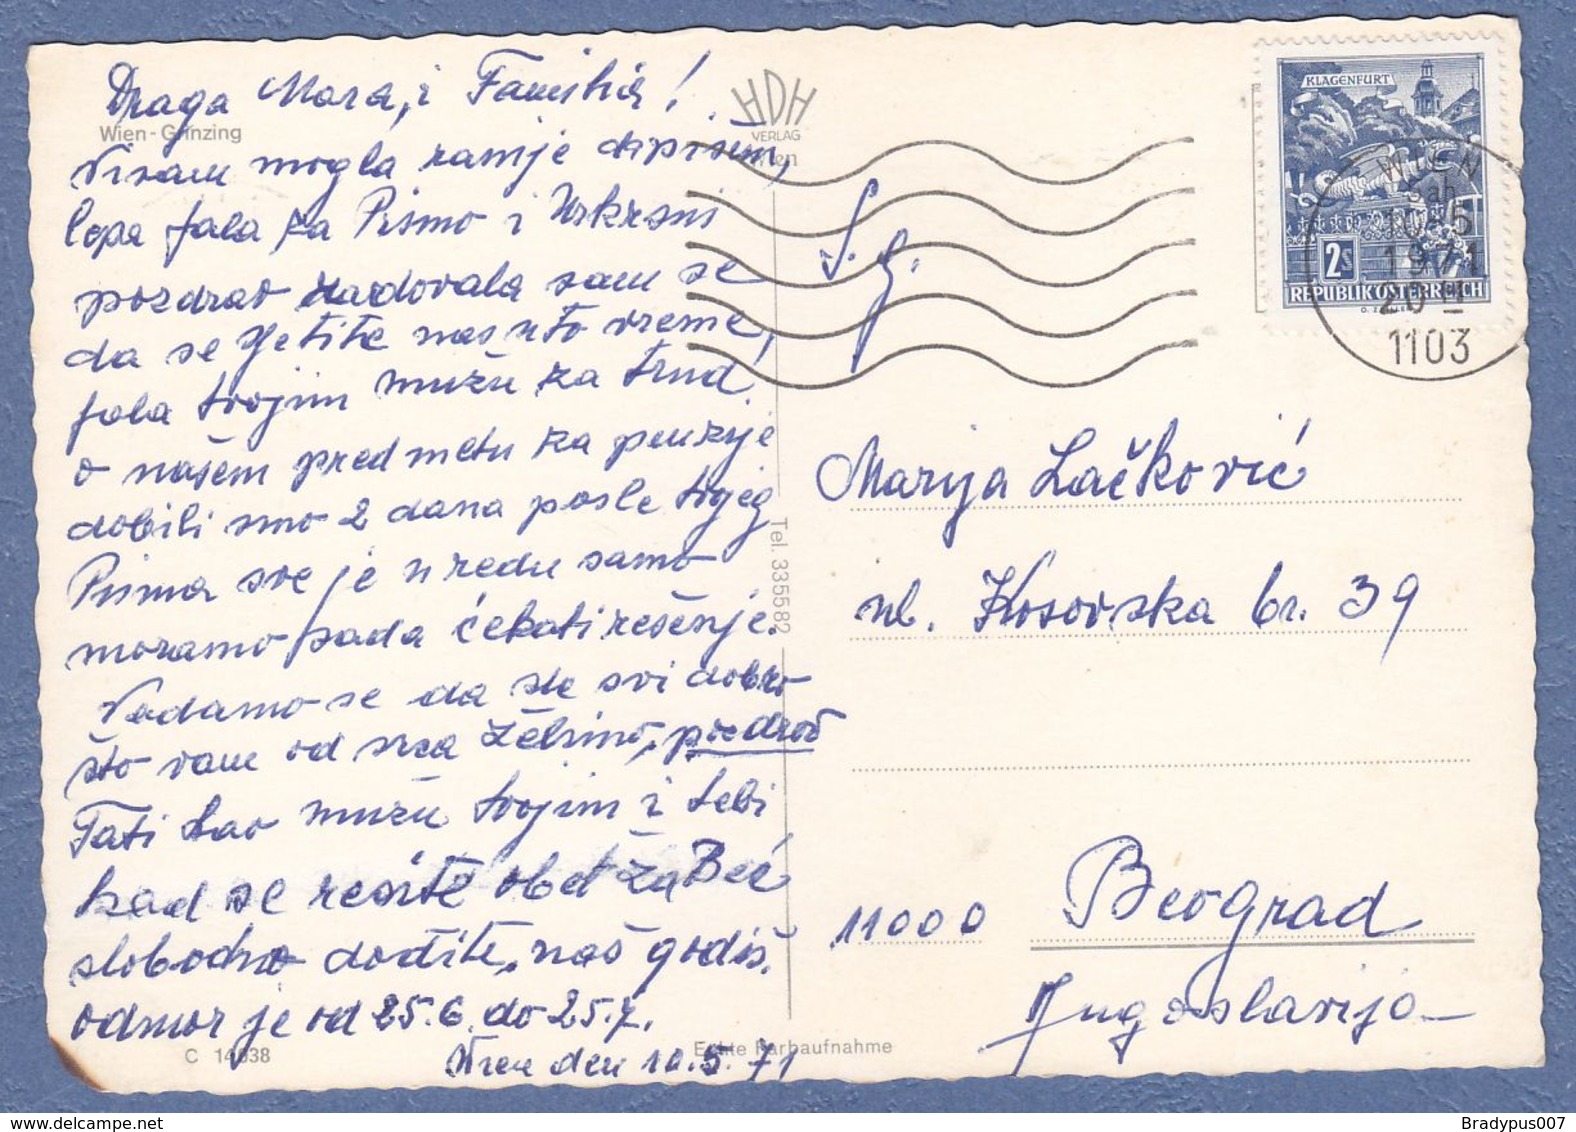 Draga Mara, i Familia!
Wien - Grinzing
Nisam mogla ranije dipisem,
lepa fala za Pismo i Uskrsni
pozdrav radovala sam se
da se setite nas u to vreme,
fala tvojim mužu za trud
o našem predmetu za penzije
dobili smo 2 dana posle tvojeg
Pisma sve je u redu samo
moramo sada ćekati rešenje.
Nadamo se da ste svi dobro
što vam od srca želimo, pozdrav
Tati kao mužu tvojim i tebi
kad se resite obet za Beć
slobodno dođite, naš godiš.
odmor je od 25.6. do 25.7.
Wien den 10.5.71
C 14838
Echte Farbaufnahme
HDH
VERLAG
Wien
S. g.
Tel. 335582
KLAGENFURT
2s
REPUBLIK ÖSTERREICH
WIEN
10-5
1971
20
1103
Marija Lačković
ul. Kosovska br. 39
11000 Beograd
Jugoslavija
Bradypus007